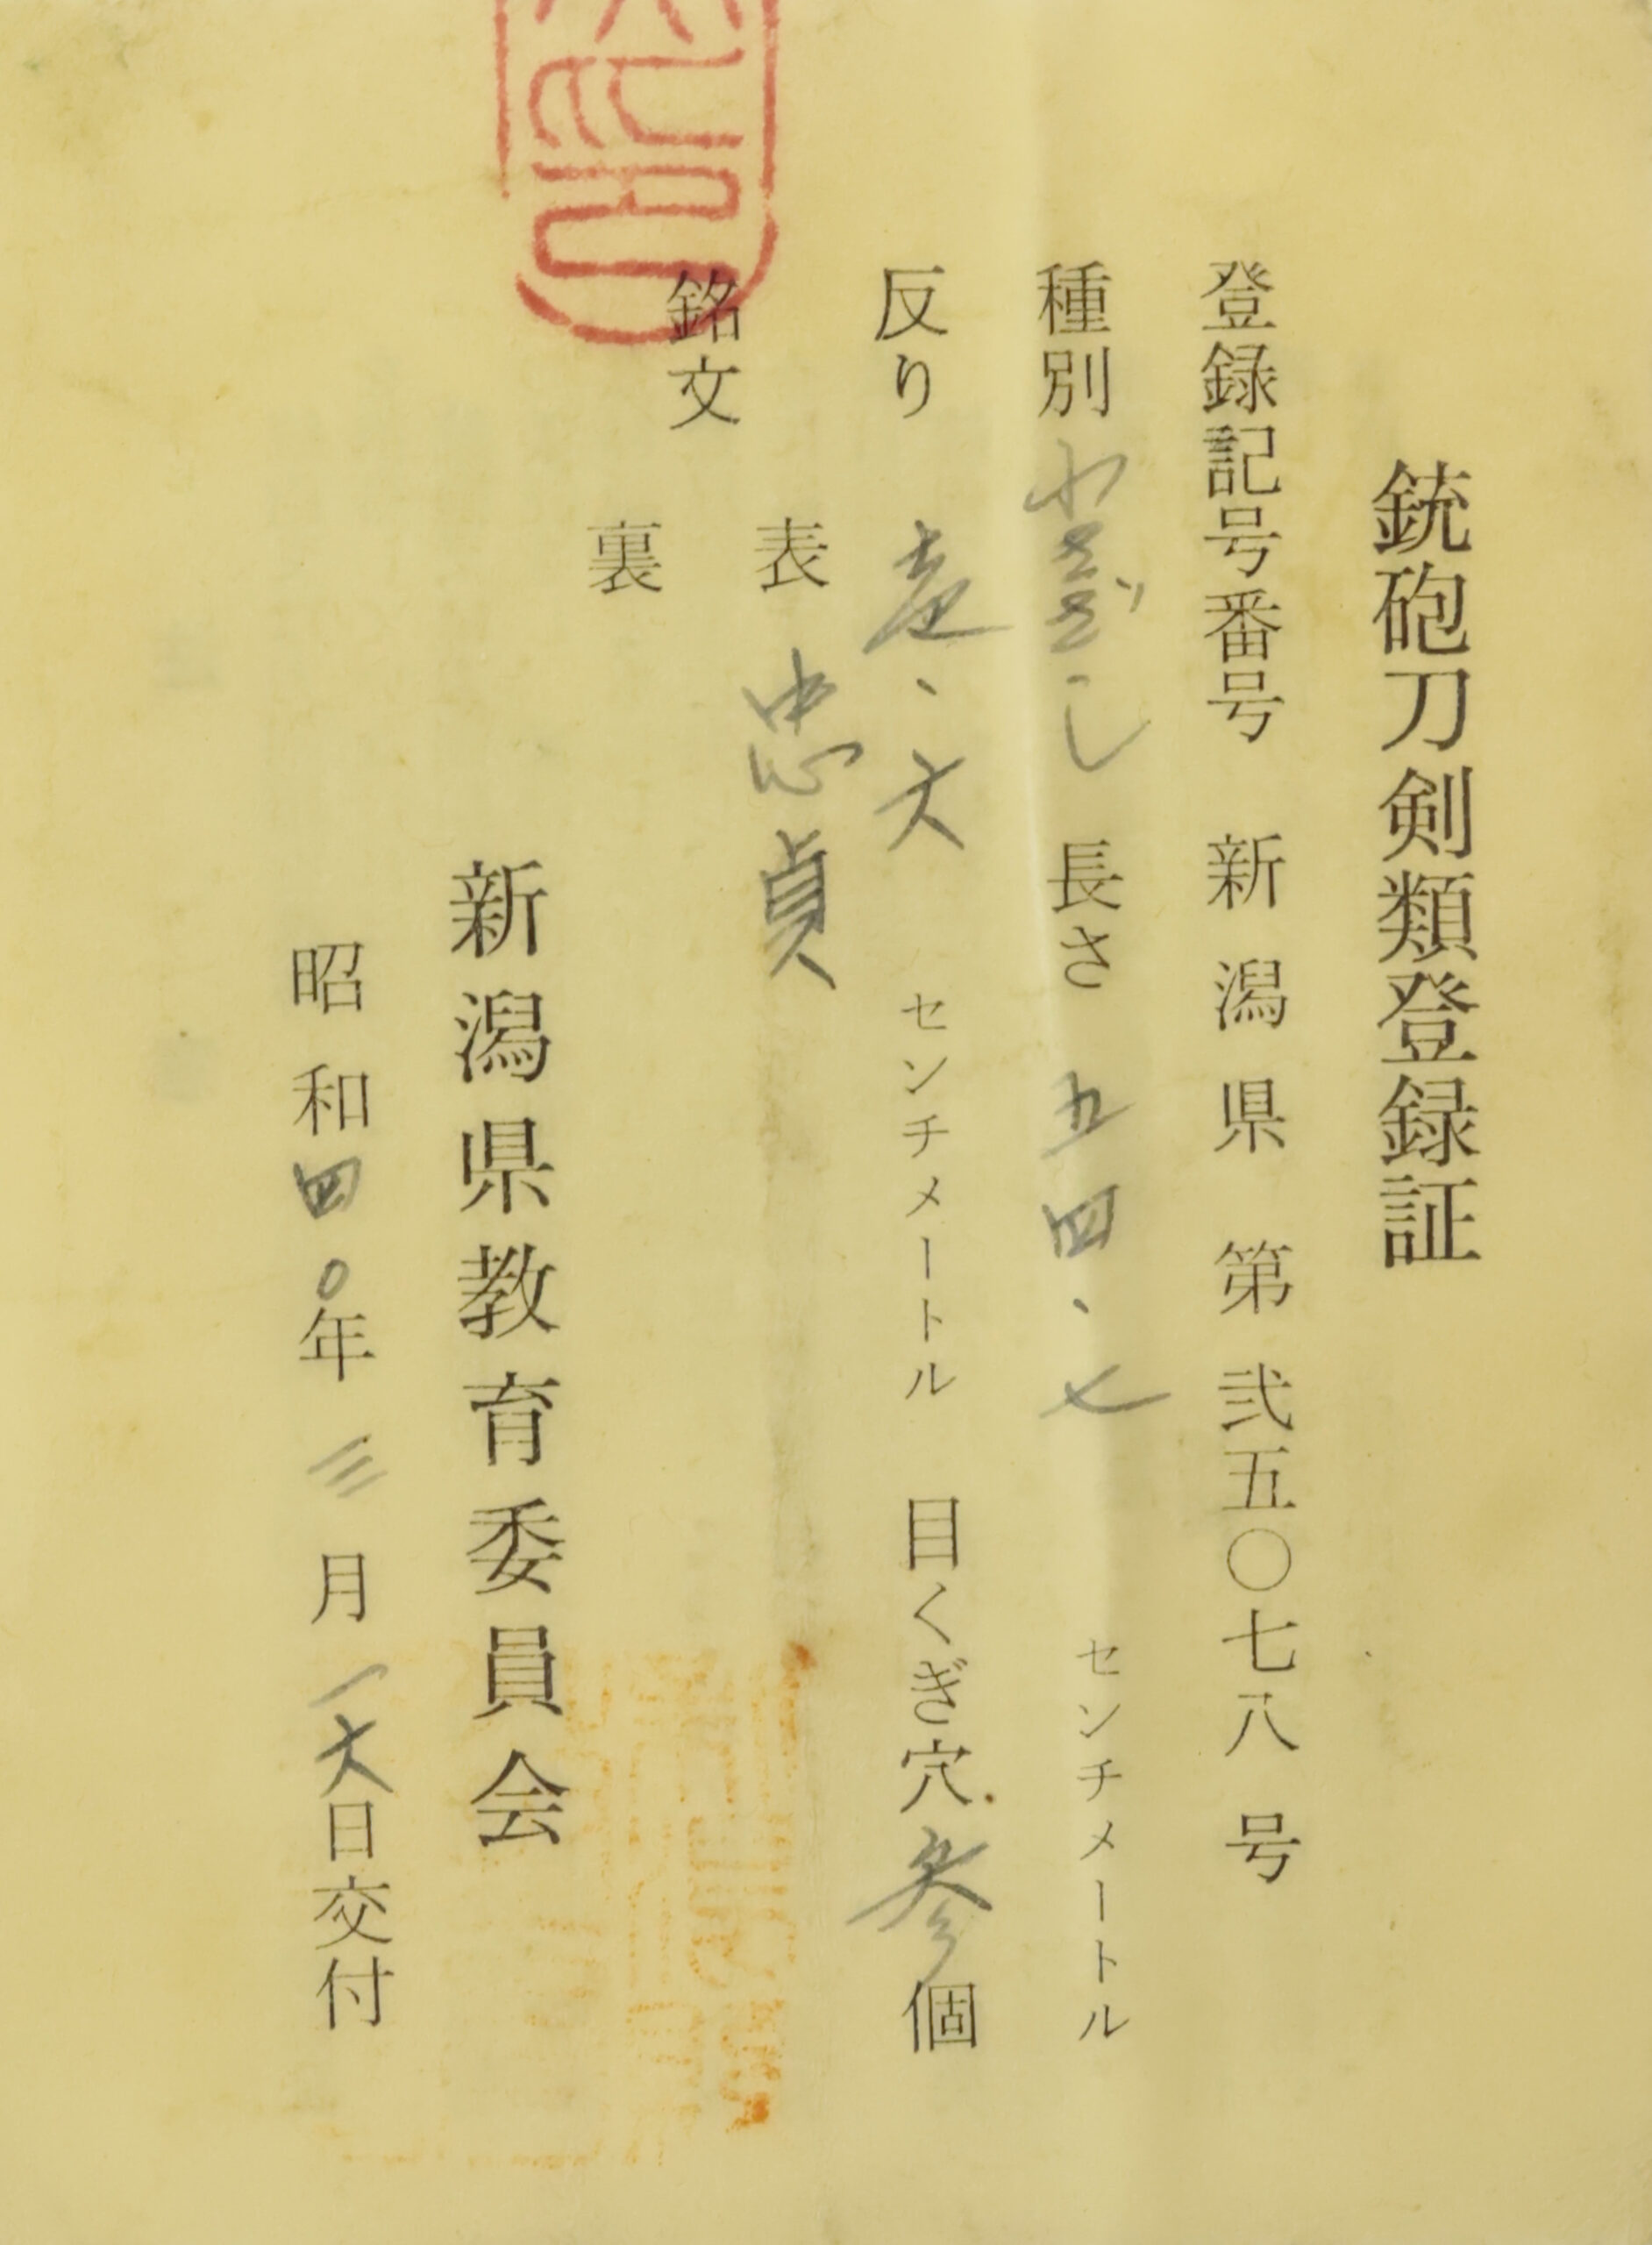 銃砲刀剣類登録証
登録記号番号 新潟県 第 弐五〇七八 号
種別 わきざし 長さ 五四、七 センチメートル
反り 壱、六 センチメートル 目くぎ穴 参 個
銘文 表 忠貞
裏
新潟県教育委員会
昭和四〇年 三月一六日交付